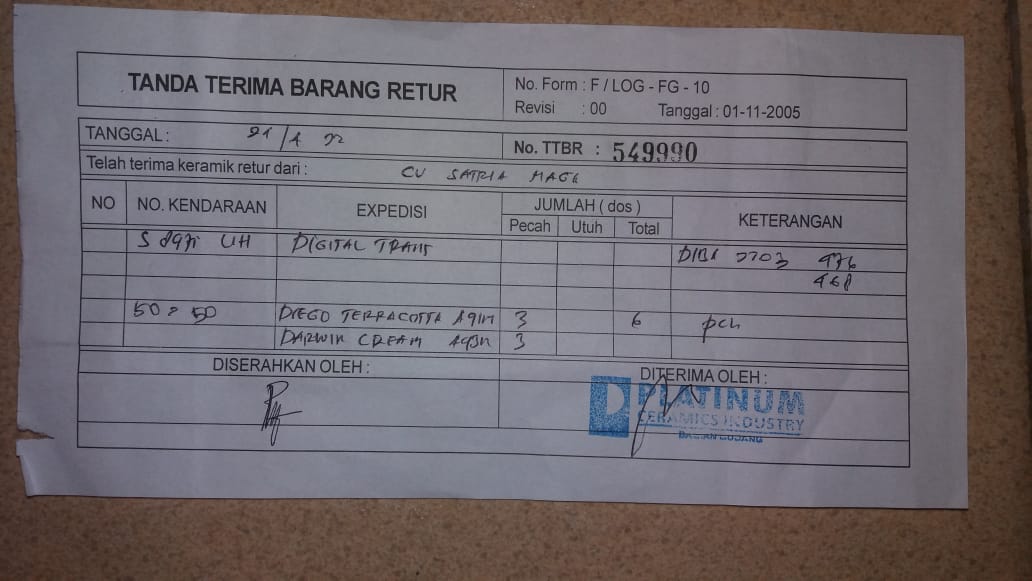 TANDA TERIMA BARANG RETUR
No. Form : F / LOG - FG - 10
Revisi : 00 Tanggal : 01-11-2005
TANGGAL : 21/4 22
No. TTBR : 549990
Telah terima keramik retur dari : CV SATRIA
NO NO. KENDARAAN EXPEDISI JUMLAH ( dos ) KETERANGAN
Pecah Utuh Total
UH DIGITAL TRANS 476
468
50 x 50 DIEGO TERRACOTTA 3 6 pch
DARWIN CREAM 3
DISERAHKAN OLEH : DITERIMA OLEH :
PLATINUM
CERAMICS INDUSTRY
BAGIAN GUDANG